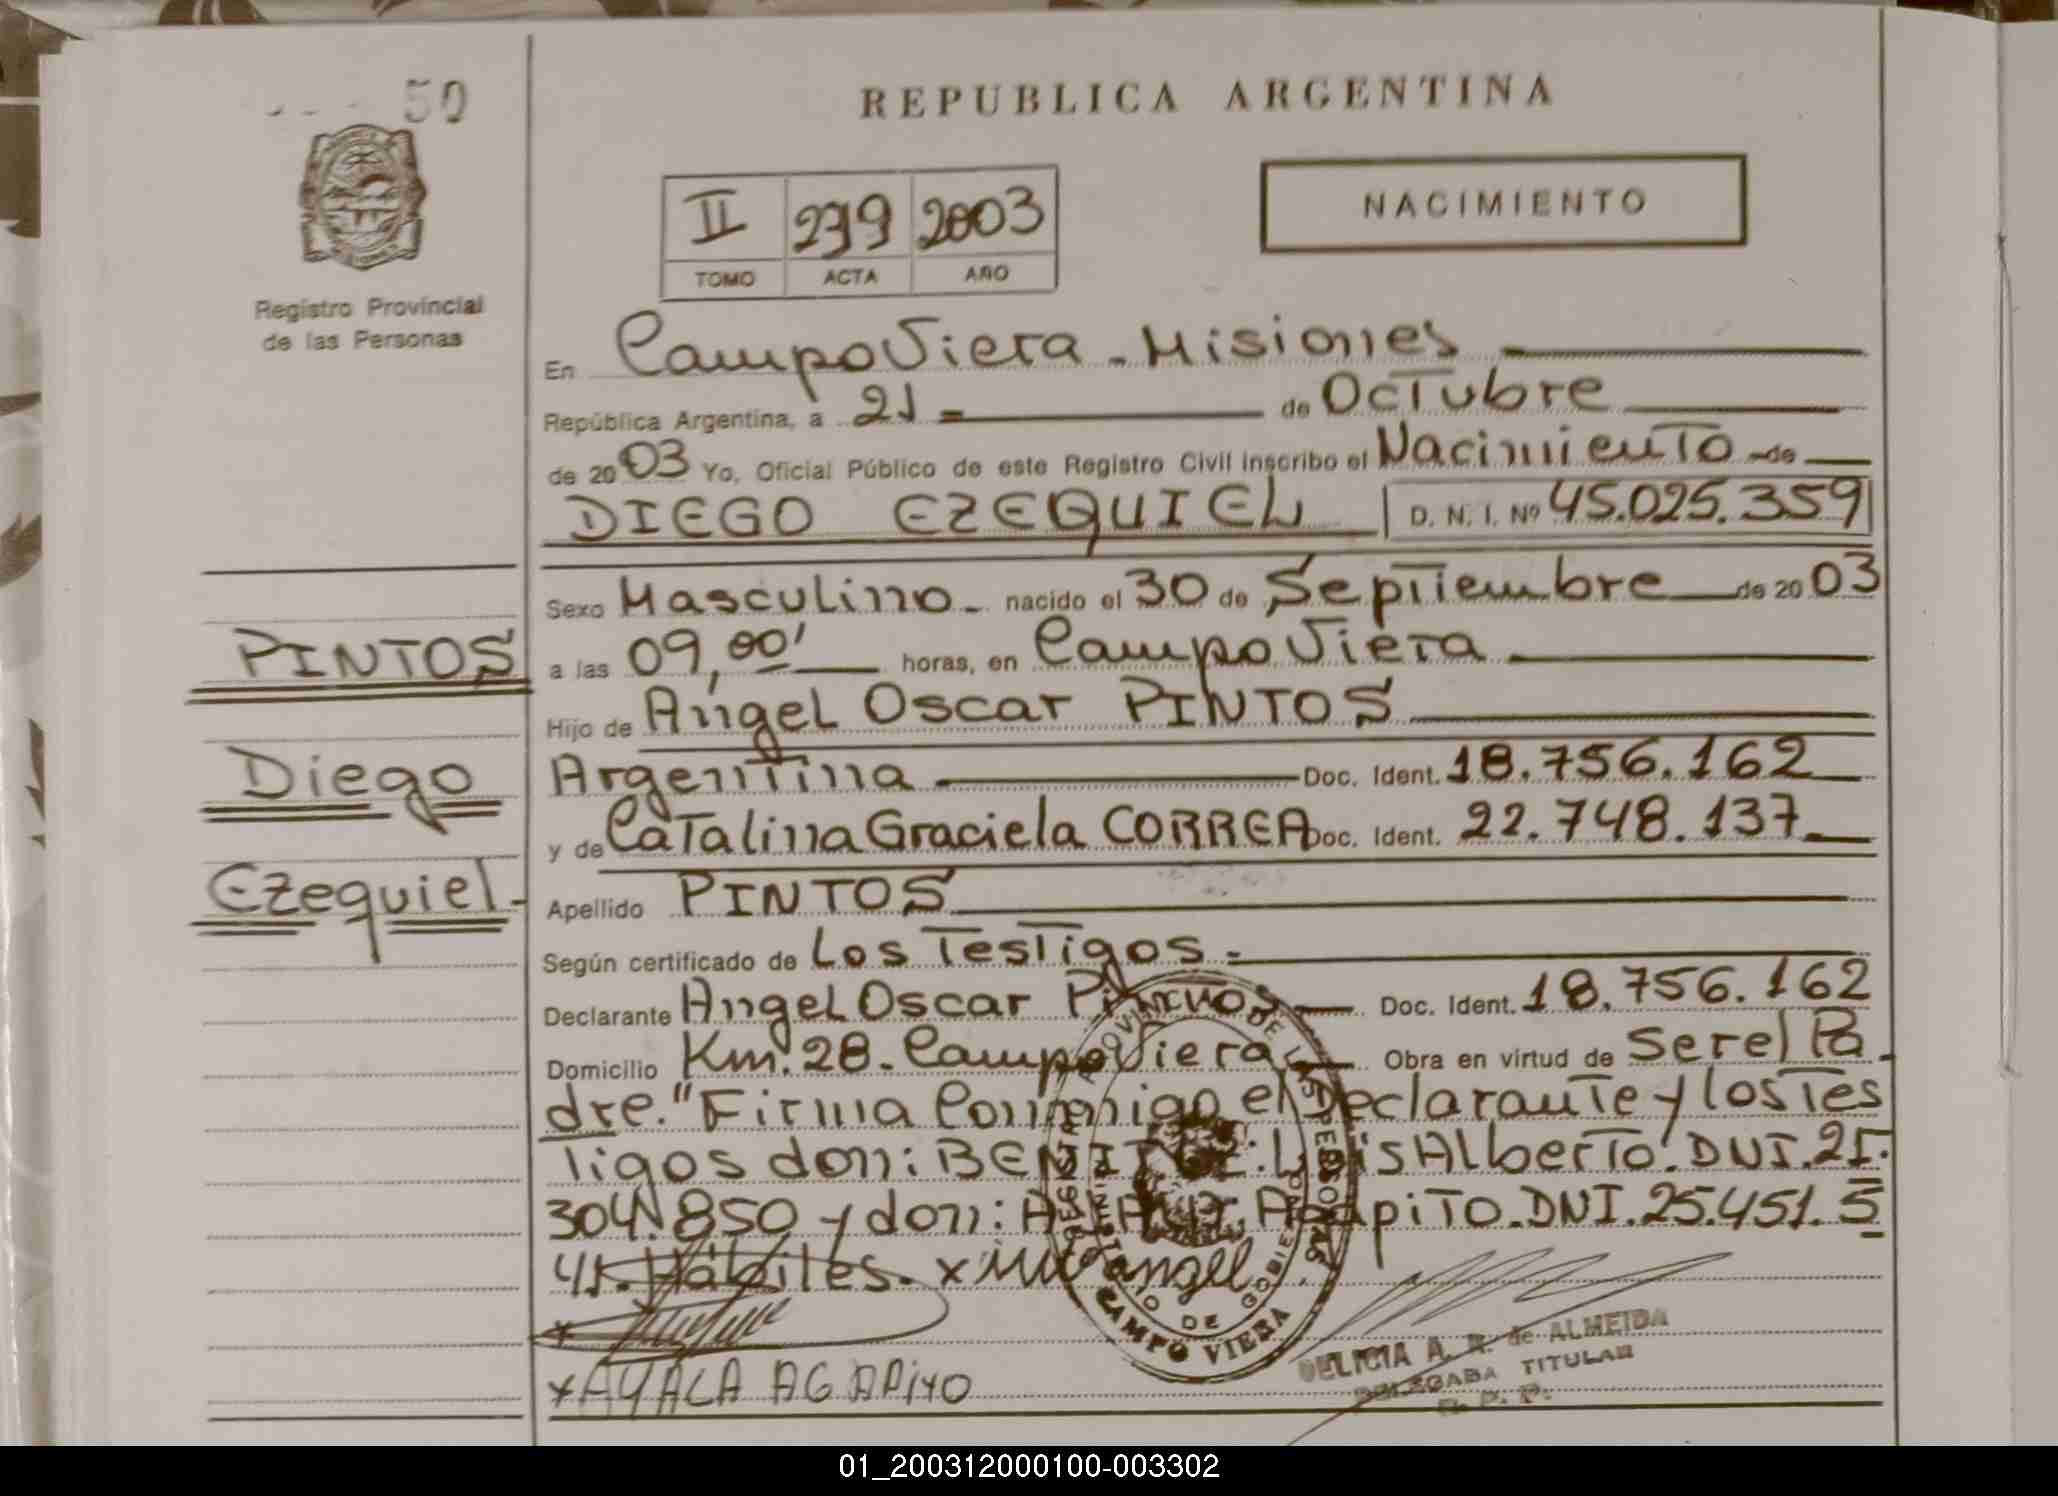 50
REPUBLICA ARGENTINA
II 279 2003
TOMO ACTA AÑO
NACIMIENTO
Registro Provincial
de las Personas
En Campo Viera - Misiones
República Argentina, a 21 - de Octubre
de 2003 Yo, Oficial Público de este Registro Civil inscribo el Nacimiento de
DIEGO EZEQUIEL D. N. I. Nº 45.025.359
Sexo Masculino - nacido el 30 de Septiembre de 2003
PINTOS
a las 09,00' horas, en Campo Viera
Hijo de Angel Oscar PINTOS
Diego
Argentina Doc. Ident. 18.756.162
y de Catalina Graciela CORREA Doc. Ident. 22.748.137
Ezequiel -
Apellido PINTOS
Según certificado de Los Testigos -
Declarante Angel Oscar Pintos Doc. Ident. 18.756.162
Domicilio Km. 28 - Campo Viera Obra en virtud de ser el Pa
dre." Firma Conmigo el Declarante y los Tes
tigos don: BENITEZ: Luis Alberto. DNI. 21.
304.850 y don: AYALA Agapito. DNI. 25.451.5
41. Hábiles. x angel
x AYALA AGAPITO
PROVINCIAL DE LAS PERSONAS
MINISTERIO DE GOBIERNO
CAMPO VIERA
DELICIA A. R. de ALMEIDA
DELEGADA TITULAR
R. P. P.
01_200312000100-003302